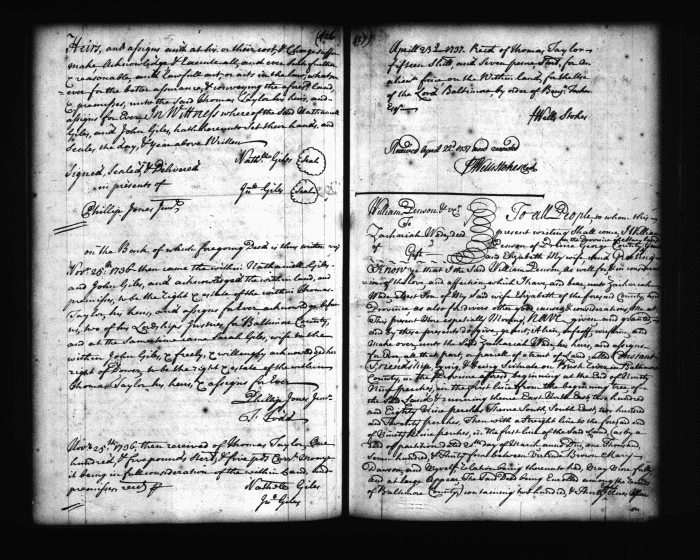 (126
Heirs, and assigns and at his or their cost, & Charge
make Acknowledge & Execute all, and every
& reasonable, and Lawfull act, or acts in the law, whatso=
=ever for the better assurance, & conveying the aforesd land,
& premisses, unto the said Thomas Taylor his heirs, and
assigns for Ever. In Wittness whereof the said Nathaniel
Giles, and John Giles, hath hereunto Set their hands, and
Seales the day, & year above Written
Signed, Sealed & Delivered
in presents of
Nathll Giles (Seal)
Jno Giles (Seal)
Phillip Jones Junr
on the Back of which foregoing Deed is thus written viz
Novr 25th 1736 then came the within Nathaniell Giles
and John Giles, and acknowledged the within land, and
premisses, to be the right & estate of the within Thomas
Taylor, his heirs, and assigns for Ever
us, two of his Lordships Justices for Baltimore County,
and at the Same time came Sarah Giles, wife to the
within John Giles, & freely, & willingly acknowledged her
right of Dower, to be the right & estate of the within
Thomas Taylor, his heirs, & assigns for Ever
Phillip Jones Junr
T. Todd
Novr 25th 1736, then received of Thomas Taylor One
hundred, & five pounds Sterl. & five
it being in full consideration of the within Land, and
premisses, recd
Nathll Giles
Jno Giles
127)
Aprill 23d 1737. Recd of Thomas Taylor
fifteen Shill, and Seven pence Sterl, for an
alienn fine on the Within land, for the use
of the Lord Baltimore by order of Benj. Tasker
Esqr
J Wells Stokes
Received April 22d 1737 and recorded
J Wells Stokes Cd
William Denson & ux
To
Zachariah Wade, deed
of Gift
To all People to whom this
present writing Shall come, I William
Denson of Prince Georges County
and Elizabeth My wife, Send Greeting
Know ye that I the Said William Denson, As well for in consider
=ation of the love, and affection, which I have, and bear, unto Zachariah
Wade, Son of My Said wife Elizabeth of the foresd County, and
Province, as also for Divers other good causes, & considerations, me at
this present Moving, HAVE given, and granted
and by these presents do give, grant, Alien, enfeoff, confirm, and
Make over, unto the Said Zachariah Wade, his heirs, and assigns
for Ever, all that part, or parcell of a tract of Land called Constant
Friendship, Lying, & being Situate, on Bush River, in Baltimore
County, in the Province aforesd beginning at the End of Ninety
Nine perches, in the first line from the beginning tree of
the Said Land, & running thence East North East two hundred
and Eighty Nine perches, Thence South, South East, two hundred
and Twenty perches, Then with a Straight line to the foresd end
of Ninety Nine perches, in the first line of the Said Land, as by a
Deed of Gift bearing date 28th Day of March anno Dom, one Thousand,
Seven hundred, & thirty four between Brown Mary
Dawson, and Myself relation being thereunto had, May More fully
and at large Appear, The Said Deed being Enrolled among the Records
of Baltimore County containing two hundred, &